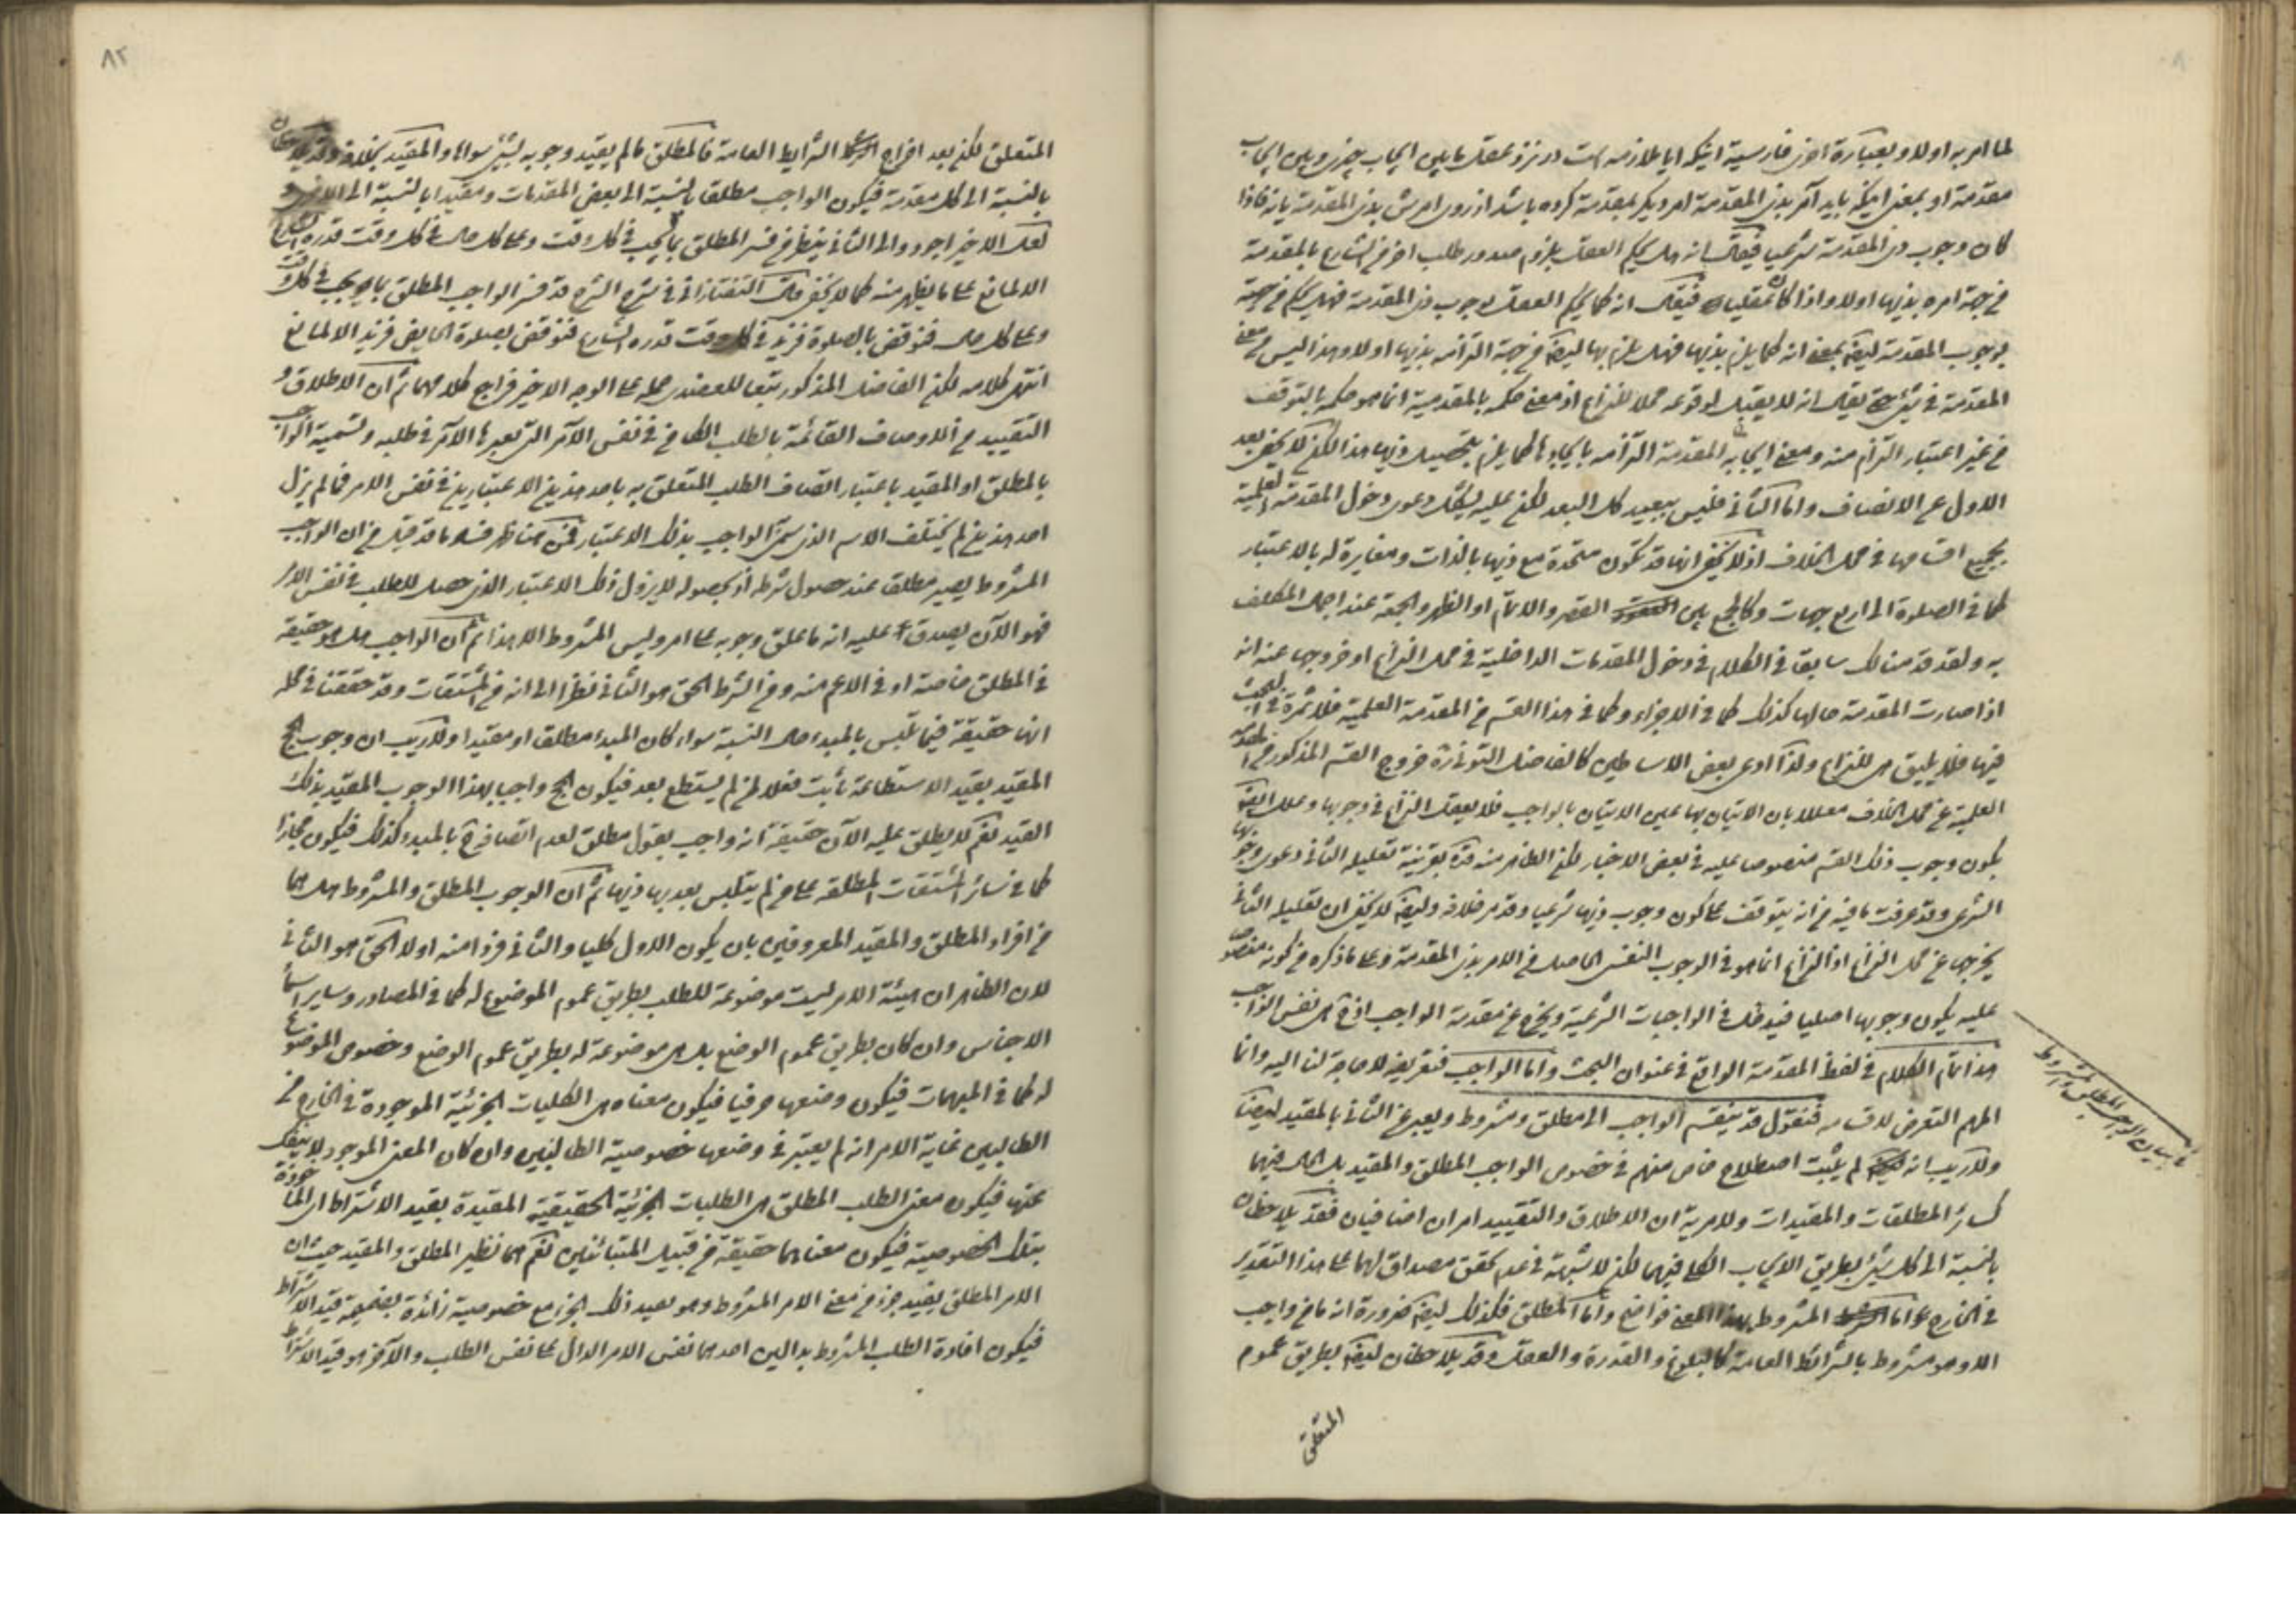 لما امر به اولا و بعبارة اخرى فارسية اينكه ايا ملازمه است در نزد عقل مابين ايجاب چيزى و بين ايجاب
مقدمة او بمعنى اينكه بايد آمر بذى المقدمة امر ديگر بمقدمة كرده باشد از روى امرش بذى المقدمة يا نه فاذا
كان وجوب ذى المقدمة شرعيا فيقال انه هل يحكم العقل بلزوم صدور طلب اخر من الشارع بالمقدمة
من جهة امره بذيها اولا واذا كان عقليا فيقال انه كما يحكم العقل بوجوب ذى المقدمة فهل يحكم من جهة
بوجوب المقدمة ايضا بمعنى انه كما يلزم بذيها فهل يلزم بها ايضا من جهة الزامه بذيها اولا وهذا ليس من معنى
المقدمة فى شئ حتى يقال انه لا يعقل لوقوعه محلا للنزاع اذ معنى حكمه بالمقدمية انما هو حكمه بالتوقف
من غير اعتبار الزام منه ومعنى ايجابه المقدمة الزامه بايجادها كما يلزم بتحصيل ذيها هذا لكن لا يخفى بعد
الاول عن الانصاف واما الثانى فليس ببعيد كل البعد لكن عليه يشكل دعوى دخول المقدمة العلمية
بجميع اقسامها فى محل الخلاف اذ لا يخفى انها قد تكون متحدة مع ذيها بالذات ومغايرة له بالاعتبار
كما فى الصلوة الى اربع جهات وكالجمع بين القصر والاتمام او الظهر والجمعة عند اجمال المكلف
به ولقد قدمنا لك سابقا فى الكلام فى دخول المقدمات الداخلية فى محل النزاع او خروجها عنه انه
اذا صارت المقدمة حالها كذلك كما فى الاجزاء وكما فى هذا القسم من المقدمة العلمية فلا ثمرة فى البحث
فيها فلا يليق هى للنزاع ولذا ادعى بعض الاساطين كالفاضل التونى ره خروج القسم المذكور من المقدمة
العلمية عن محل الخلاف معللا بان الاتيان بها عين الاتيان بالواجب فلا يعقل النزاع فى وجوبها وعلل ايضا
بكون وجوب ذلك القسم منصوصا عليه فى بعض الاخبار لكن الظاهر منه قده بقرينة تعليله الثانى دعوى وجوبها
الشرعى وقد عرفت ما فيه من انه يتوقف على كون وجوب ذيها شرعيا وقد مر خلافه وايضا لا يخفى ان تعليله الثانى
يخرجها عن محل النزاع اذ النزاع انما هو فى الوجوب النفسى الحاصل من الامر بذى المقدمة وعلى ما ذكره من كونه منصوصا
عليه يكون وجوبها اصليا فيدخل فى الواجبات الشرعية ويخرج عن مقدمة الواجب اذن هى نفس الواجب
هذا تمام الكلام فى لفظ المقدمة الواقع فى عنوان البحث واما الواجب فتعريفه لا حاجة لنا اليه وانما
فى بيان الواجب المطلق والمشروط
المهم التعرض لاقسامه فنقول قد ينقسم الواجب الى مطلق ومشروط ويعبر عن الثانى بالمقيد ايضا
ولا ريب انه لم يثبت اصطلاح خاص منهم فى خصوص الواجب المطلق والمقيد بل الحال فيهما
كسائر المطلقات والمقيدات ولا مرية ان الاطلاق والتقييد امران اضافيان فقد يلاحظان
بالنسبة الى كل شئ بطريق الايجاب الكلى فيهما لكن لا شبهة فى عدم تحقق مصداق لهما على هذا التقدير
فى الخارج اما المشروط بهذا المعنى فواضح واما المطلق فكذلك ايضا ضرورة انه ما من واجب
الا وهو مشروط بالشرائط العامة كالبلوغ والقدرة والعقل وقد يلاحظان ايضا بطريق عموم
المتعلق
٨٢
المتعلق لكن بعد اخراج الشرايط العامة فالمطلق مالم يقيد وجوبه بشئ سواها والمقيد بخلافه وقد يلاحظان
بالنسبة الى كل مقدمة فيكون الواجب مطلقا بالنسبة الى بعض المقدمات ومقيدا بالنسبة الى الاخرى و
لعل الاخير اجود والى الثانى ينظر من فسر المطلق بما يجب فى كل وقت وعلى كل حال فى كل وقت قدره الشارع
الا لمانع على ما يظهر منه كما لا يخفى قال التفتازانى فى شرح الشرح قد فسر الواجب المطلق بما يجب فى كل وقت
وعلى كل حال فنوقض بالصلوة فزيد فى كل وقت قدره الشارع فنوقض بصلوة الحايض فزيد الا لمانع
انتهى كلامه لكن الفاضل المذكور تبعا للعضدى حمله على الوجه الاخير فراجع كلامهما ثم ان الاطلاق و
التقييد من الاوصاف القائمة بالطلب الكائن فى نفس الآمر التى يعبر بها الآمر فى طلبه وتسمية الواجب
بالمطلق او المقيد باعتبار اتصاف الطلب المتعلق به باحد هذين الاعتبارين فى نفس الامر فما لم يزل
احد هذين لم يختلف الاسم الذى سمى الواجب بذلك الاعتبار فمن هنا ظهر فساد ما قد قيل من ان الواجب
المشروط يصير مطلقا عند حصول شرطه اذ بحصوله لا يزول ذلك الاعتبار الذى حصل للطلب فى نفس الامر
فهو الآن يصدق عليه انه ما علق وجوبه على امر وليس المشروط الا هذا ثم ان الواجب هل هو حقيقة
فى المطلق خاصة او فى الاعم منه ومن الشرط الحق هو الثانى نظرا الى انه من المشتقات وقد حققنا فى محله
انها حقيقة فيما تلبس بالمبدء حال النسبة سواء كان المبدء مطلقا او مقيدا ولا ريب ان وجوب الحج
المقيد بقيد الاستطاعة ثابت فعلا لمن لم يستطع بعد فيكون الحج واجبا بهذا الوجوب المقيد بذلك
القيد نعم لا يطلق عليه الآن حقيقة انه واجب بقول مطلق لعدم اتصافه بالمبدء كذلك فيكون مجازا
كما فى سائر المشتقات المطلقة على من لم يتلبس بعد بمباديها ثم ان الوجوب المطلق والمشروط هل هما
من افراد المطلق والمقيد المعروفين بان يكون الاول كليا والثانى فردا منه اولا الحق هو الثانى
لان الظاهر ان هيئة الامر ليست موضوعة للطلب بطريق عموم الموضوع له كما فى المصادر وساير اسماء
الاجناس وان كان بطريق عموم الوضع بل هى موضوعة له بطريق عموم الوضع وخصوص الموضوع
له كما فى المبهمات فيكون وضعها حرفيا فيكون معناه هى الكليات الجزئية الموجودة فى الخارج من
الطالبين غاية الامر انه لم يعتبر فى وضعها خصوصية الطالبين وان كان المعنى الموجود لا ينفك
عنها فيكون معنى الطلب المطلق هى الطلبات الجزئية الحقيقية المقيدة بقيد الاشتراط اى المأخوذة
بتلك الخصوصية فيكون معناهما حقيقة من قبيل المتبائنين نعم هما نظير المطلق والمقيد حيث ان
الامر المطلق يفيد جزء من معنى الامر المشروط وهو يفيد ذلك الجزء مع خصوصية زائدة بضميمة قيد الاشتراط
فيكون افادة الطلب المشروط بدالين احدهما نفس الامر الدال على نفس الطلب والآخر هو قيد الاشتراط